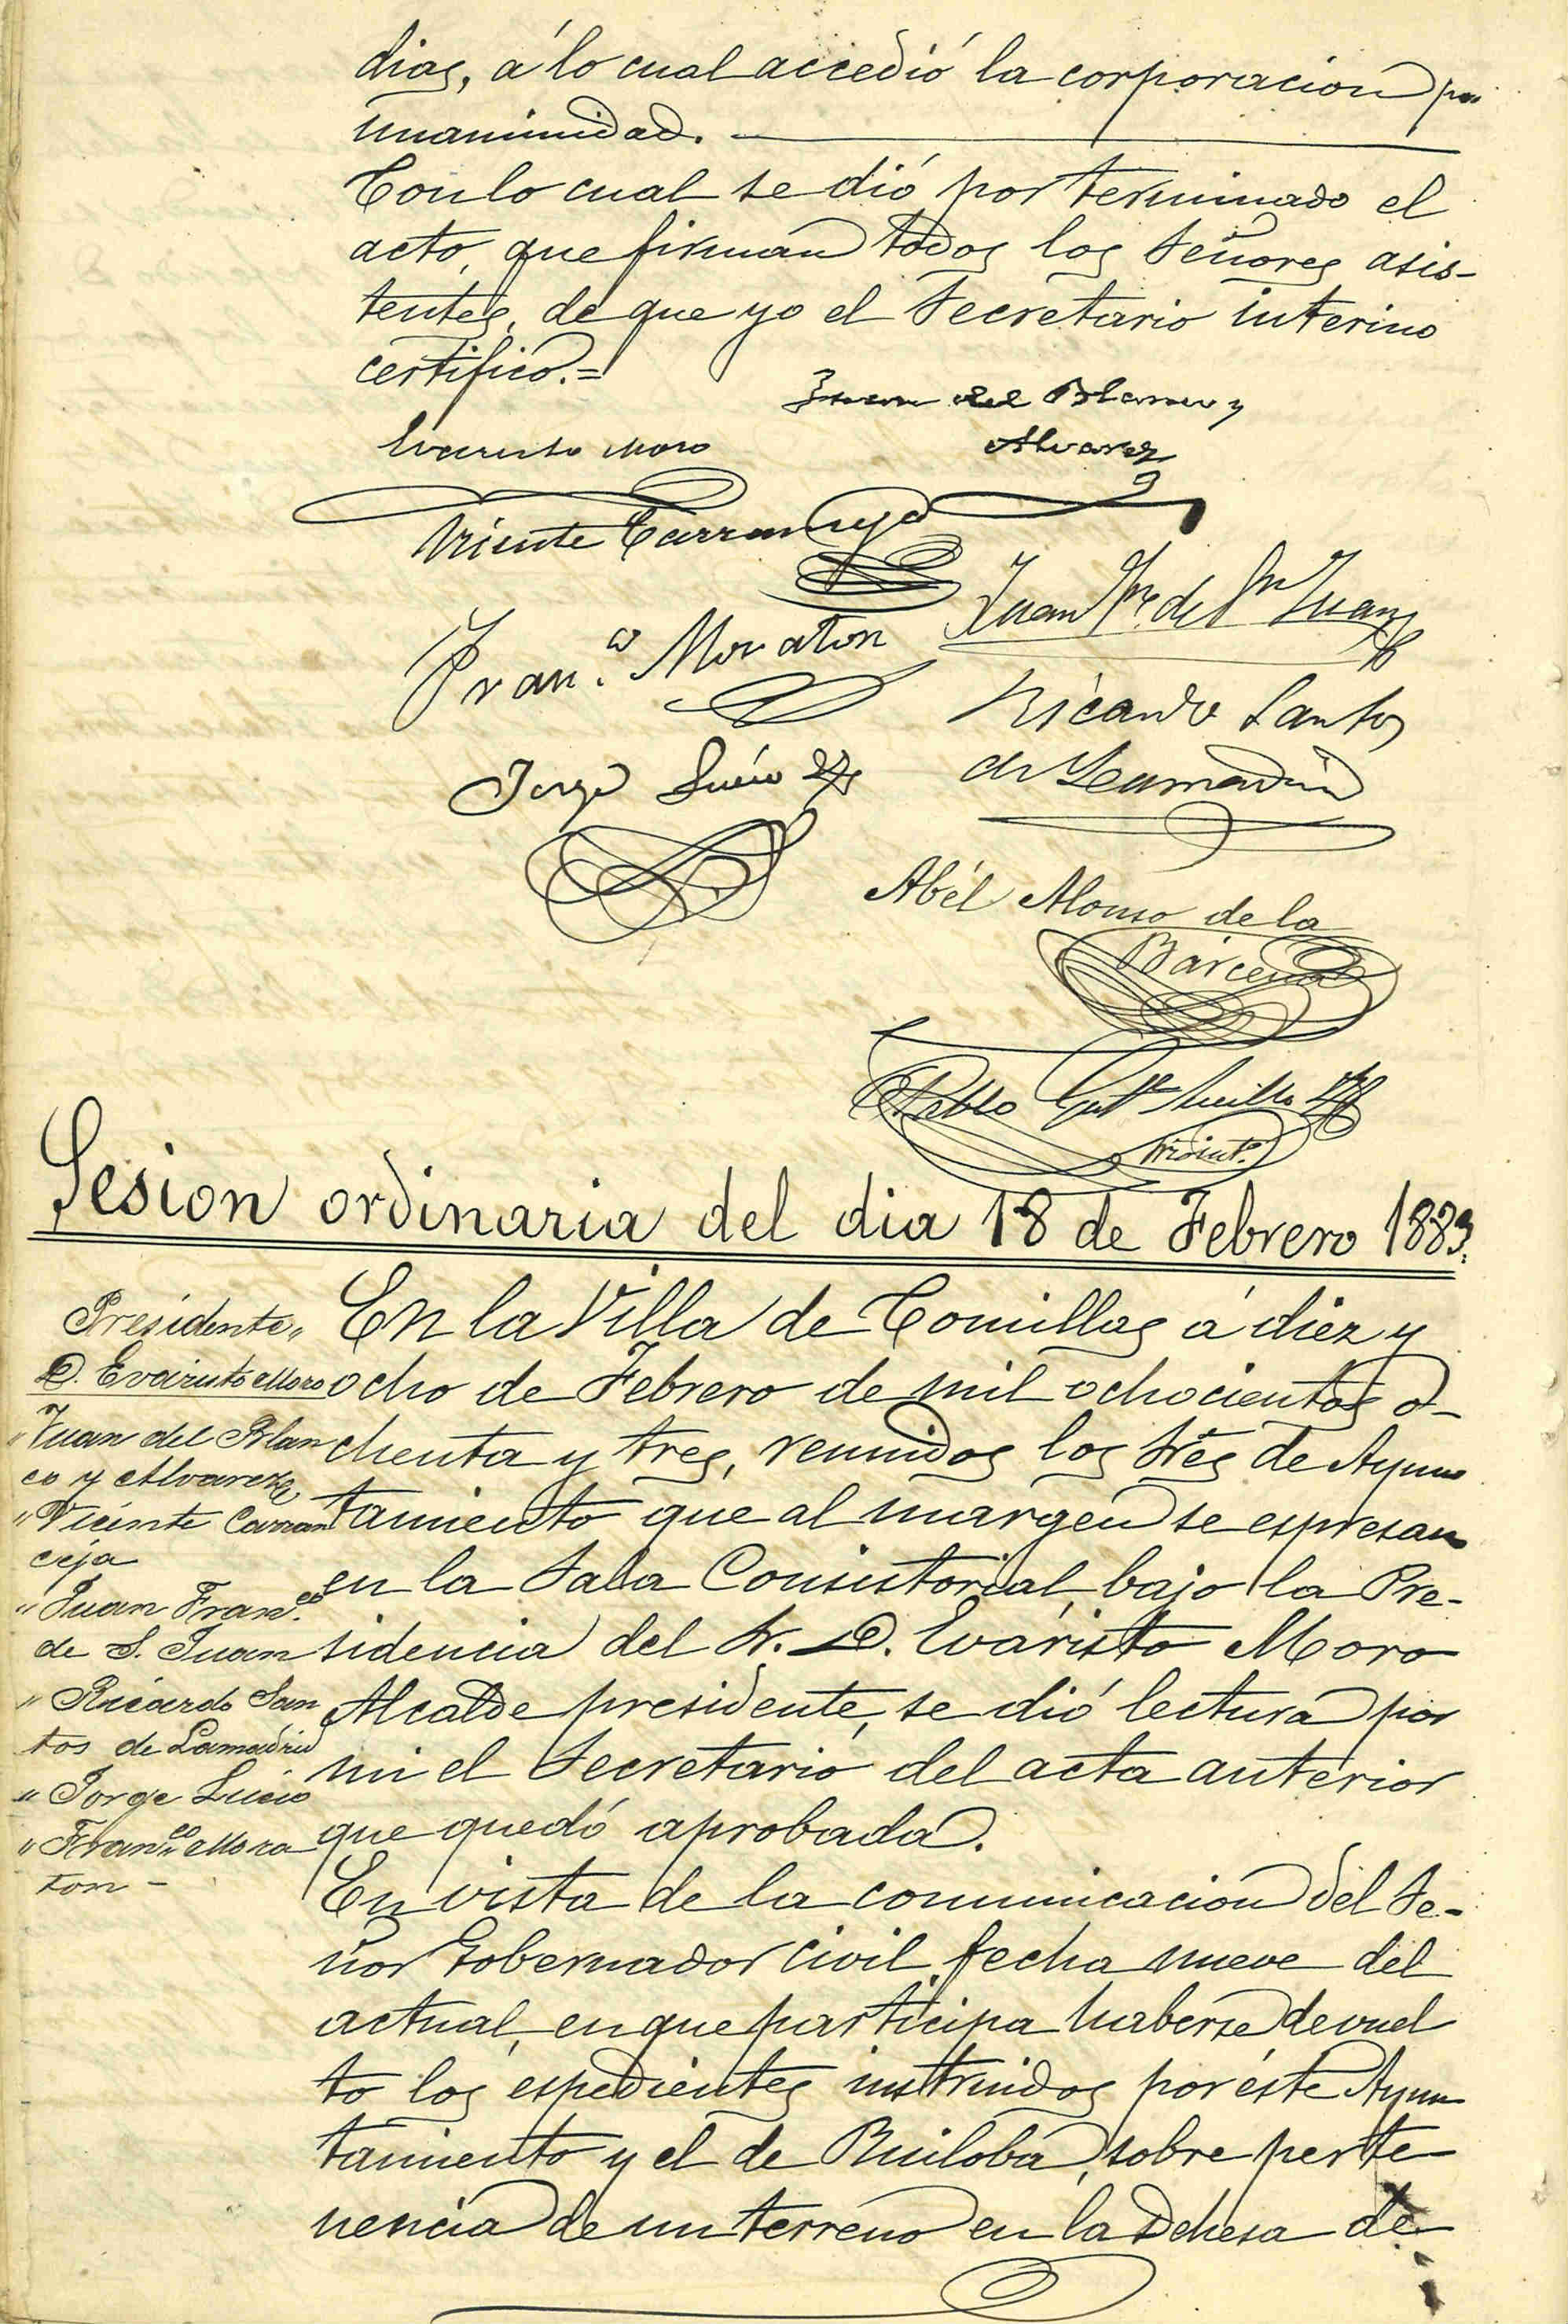 dias, á lo cual accedió la corporacion por
unanimidad.
Con lo cual se dió por terminado el
acto, que firman todos los Señores asis-
tentes, de que yo el Secretario interino
certifico.=
Juan del Blanco y
Alvarez
Evaristo Moro
Vicente Carranceja
Juan Fr. de Sn Juan
Fran.co Moraton
Ricardo Santos
de Lamadrid
Jorge Lucio
Abél Alonso de la
Bárcena
Pablo Gutz
Srio int.o
Sesion ordinaria del dia 18 de Febrero 1883.
Presidente
D. Evaristo Moro
" Juan del Blan
co y Alvarez
" Vicente Carran
ceja
" Juan Fran.co
de S. Juan
" Ricardo San
tos de Lamadrid
" Jorge Lucio
" Fran.co Mora
ton -
En la Villa de Comillas á diez y
ocho de Febrero de mil ochocientos o-
chenta y tres, reunidos los Sres de Ayun
tamiento que al margen se espresan
en la Sala Consistorial, bajo la Pre-
sidencia del Sr. D. Evaristo Moro
Alcalde presidente, se dió lectura por
mi el Secretario del acta anterior
que quedó aprobada.
En vista de la comunicacion del Se-
ñor Gobernador civil fecha nueve del
actual, en que participa haberse devuel
to los espedientes instruidos por éste Ayun
tamiento y el de Ruiloba, sobre perte
nencia de un terreno en la Dehesa de